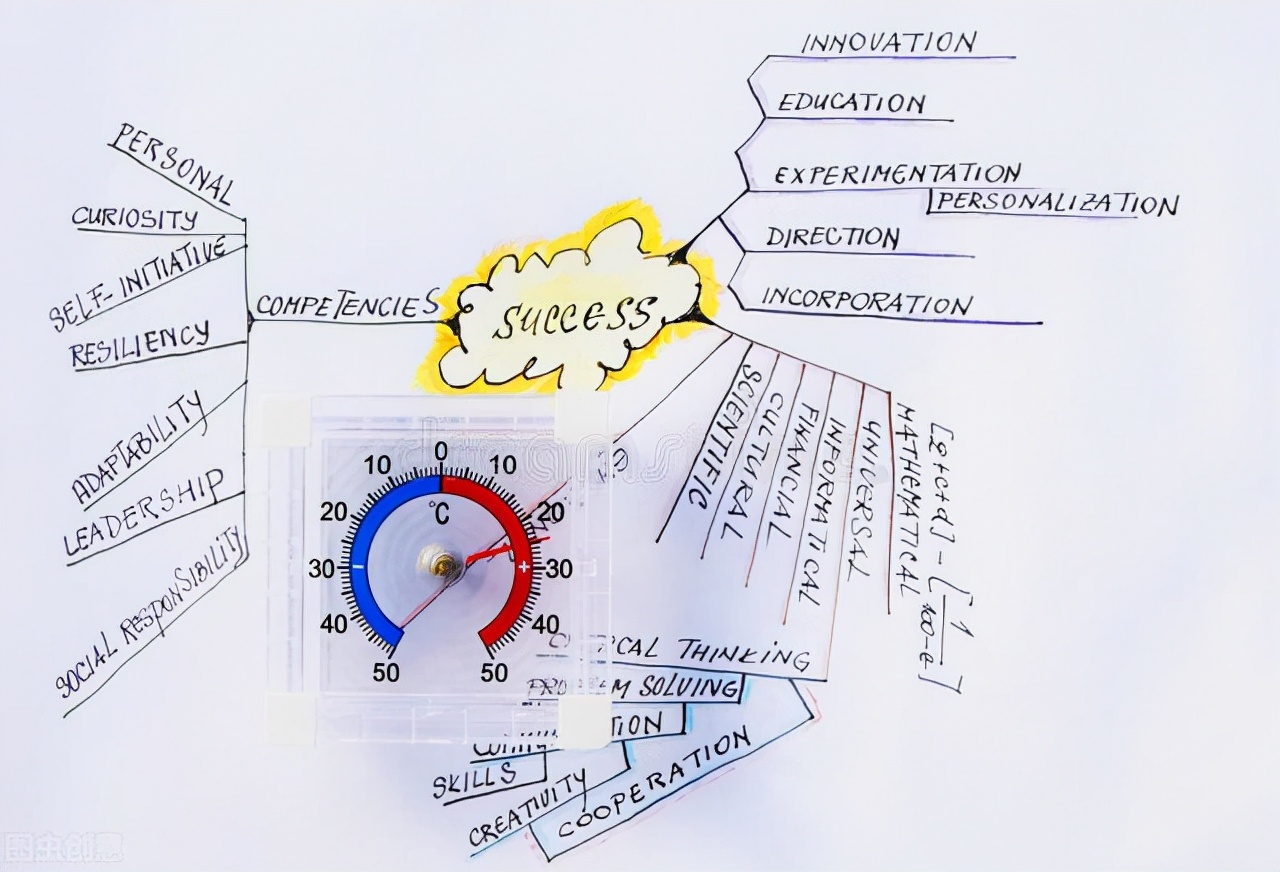 INNOVATION
EDUCATION
EXPERIMENTATION
PERSONALIZATION
DIRECTION
INCORPORATION
PERSONAL
CURIOSITY
SELF-INITIATIVE
RESILIENCY
ADAPTABILITY
LEADERSHIP
SOCIAL RESPONSIBILITY
COMPETENCIES
SUCCESS
SCIENTIFIC
CULTURAL
FINANCIAL
INFORMATICAL
UNIVERSAL
MATHEMATICAL
0
10 10
°C
20 20
30 - + 30
40 40
50 50
THINKING
SOLVING
SKILLS
CREATIVITY
COOPERATION
图虫创意